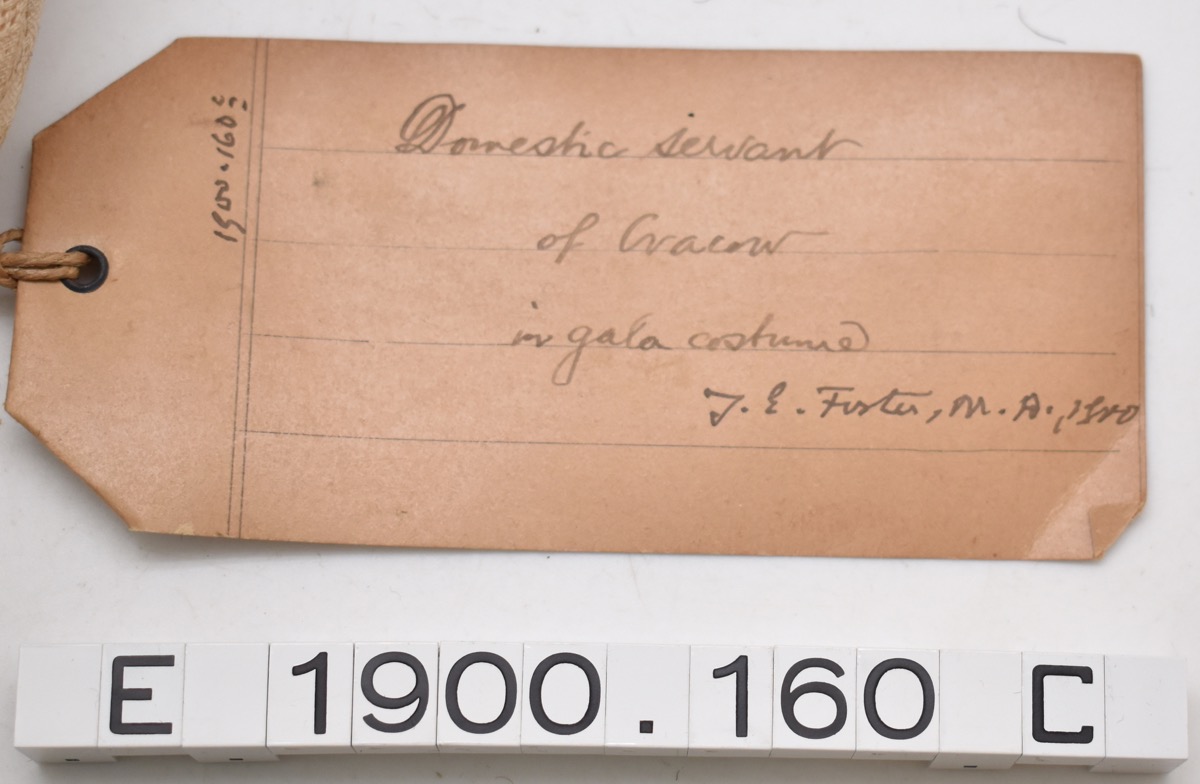 1900.160c
Domestic servant
of Cracow
in gala costume
J. E. Foster, M. A., 1900
E 1900.160 C